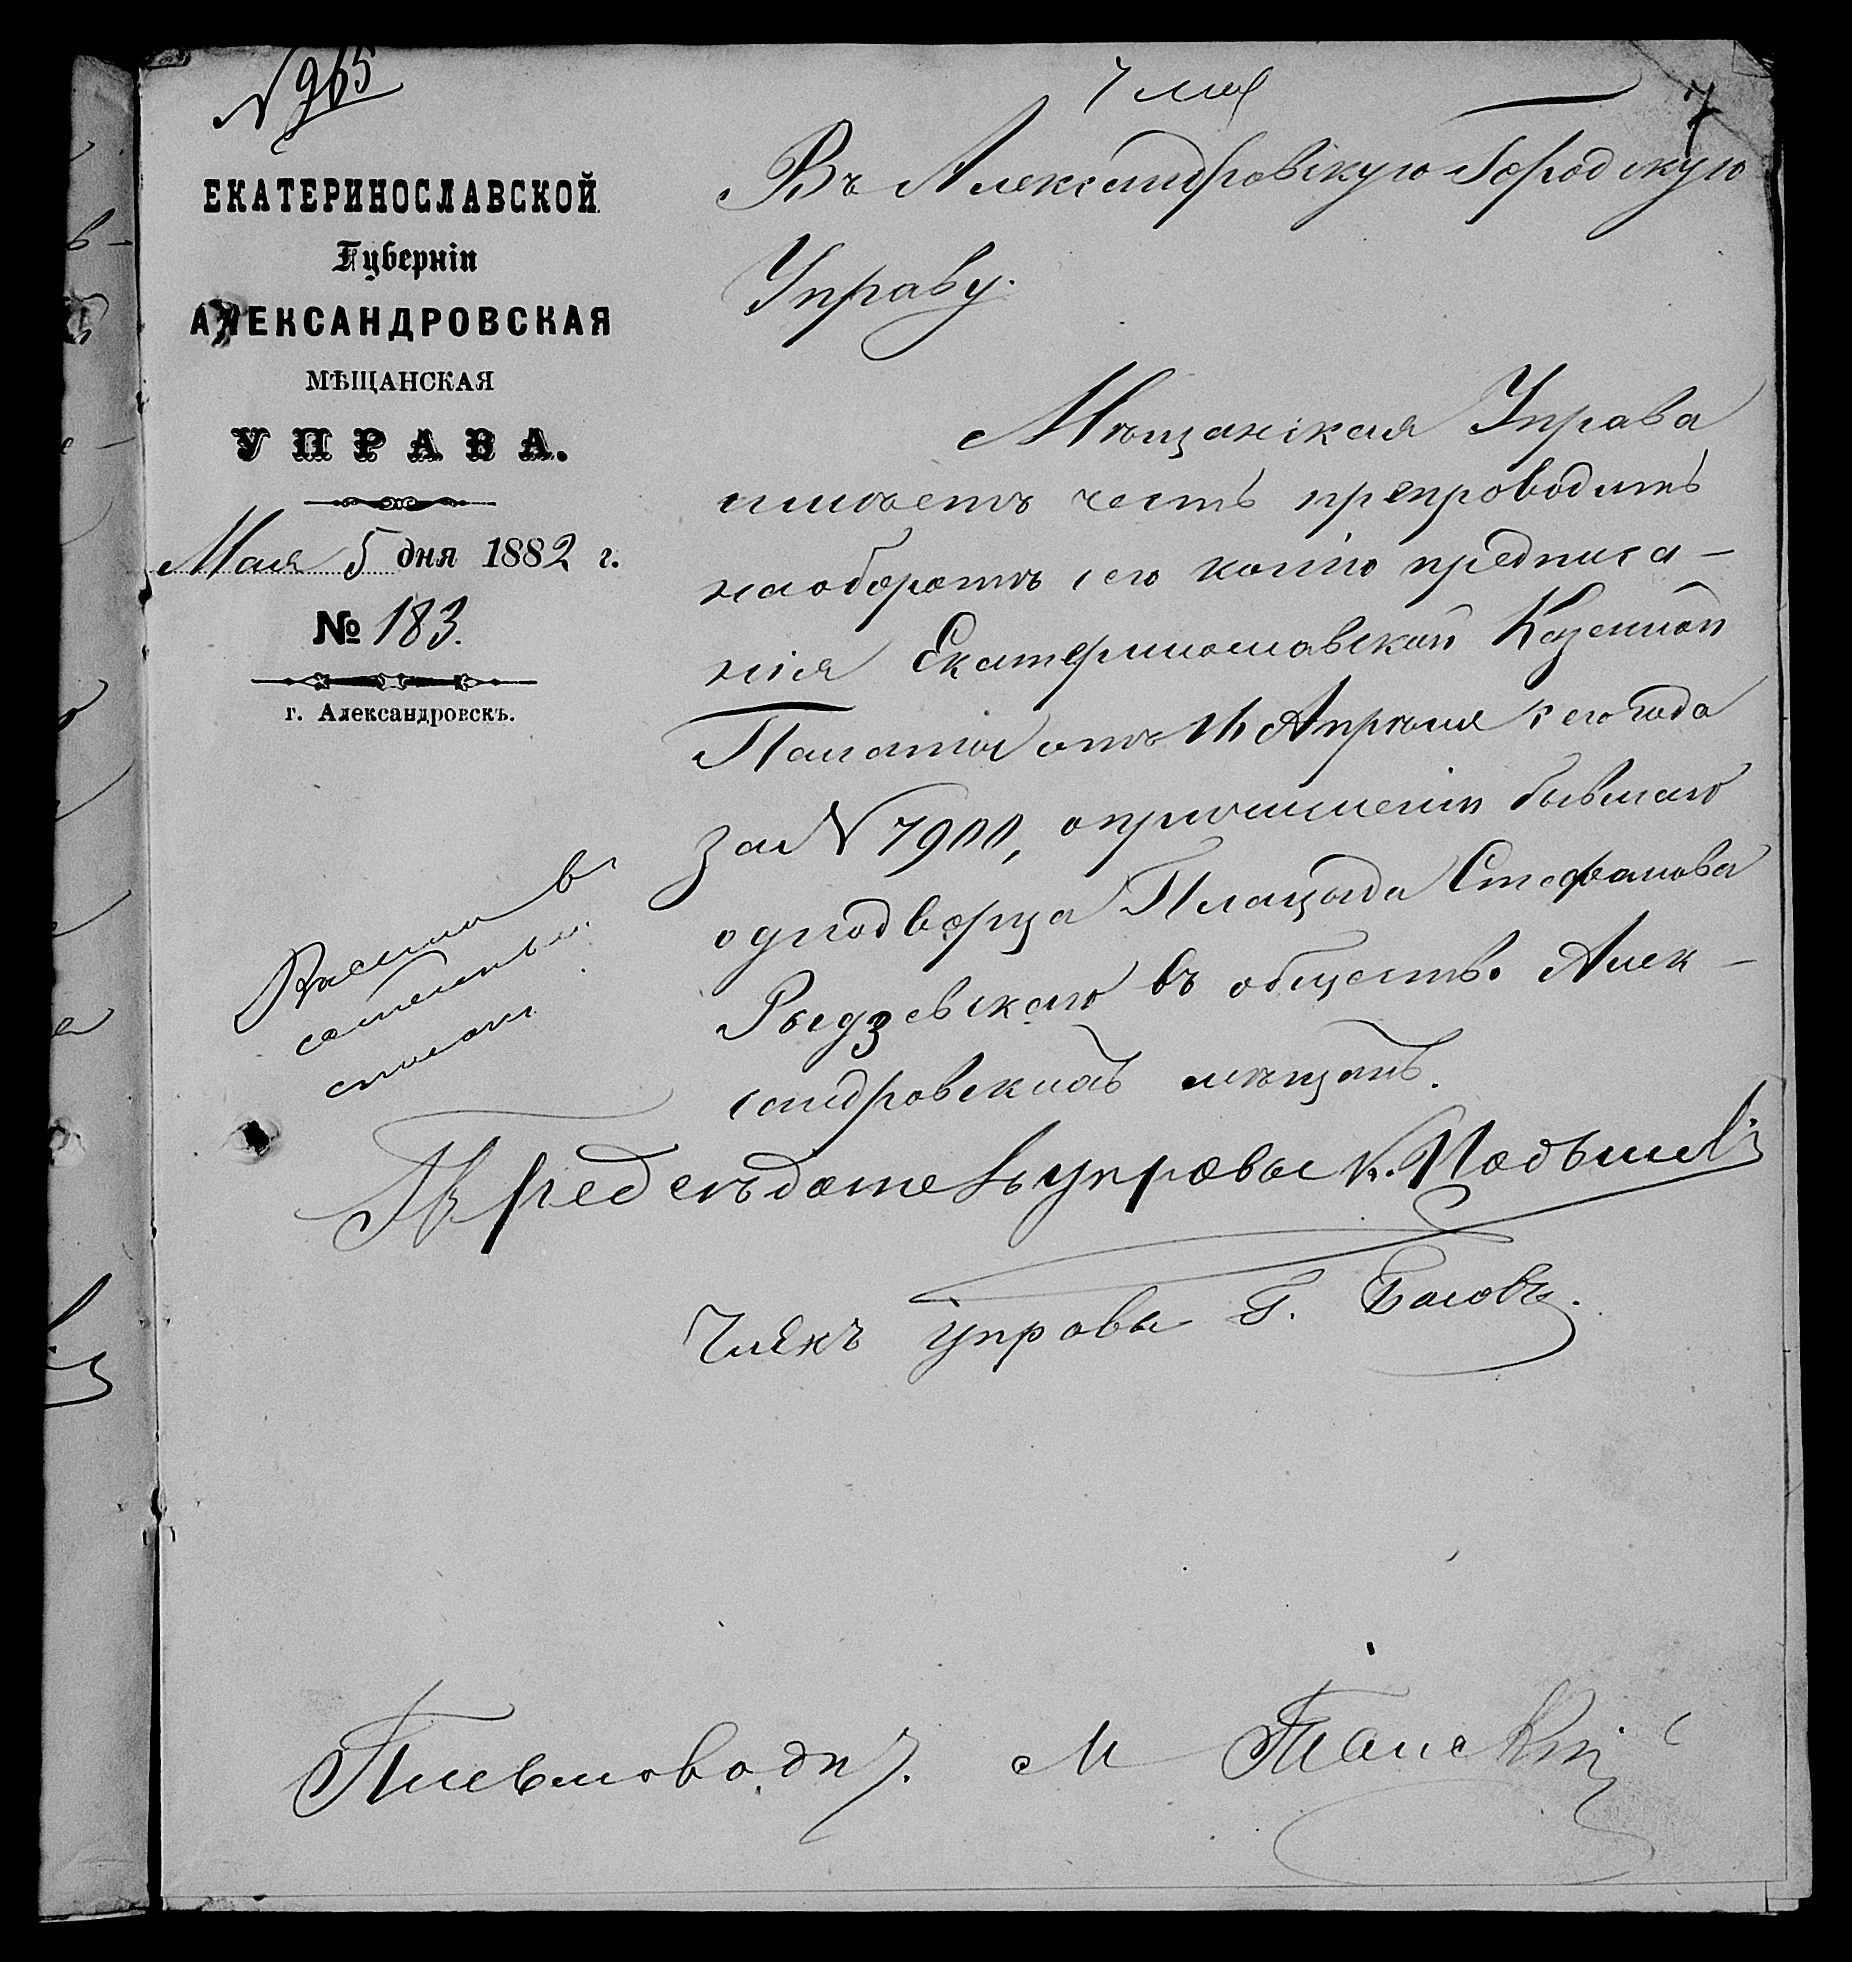 № 965
7 мая
7
ЕКАТЕРИНОСЛАВСКОЙ
Губерніи
АЛЕКСАНДРОВСКАЯ
МѢЩАНСКАЯ
УПРАВА.
Мая 5 дня 1882 г.
№ 183.
г. Александровскъ.
Въ Александровскую Городскую
Управу.
Мѣщанская Управа
имѣетъ честь препроводить
наоборотѣ сего копію предписа-
нія Екатеринославской Казенной
Палаты отъ 16 Апрѣля сего года
за № 7900, опричисленіи бывшаго
однодворца Плацыда Стефанова
Рыдзевскаго въ общество Алек-
сандровскихъ мѣщанъ.
Внести в
списки
Предсѣдатель управы К.
Членъ управы Г. Басовъ.
Письмоводит. М Танскій